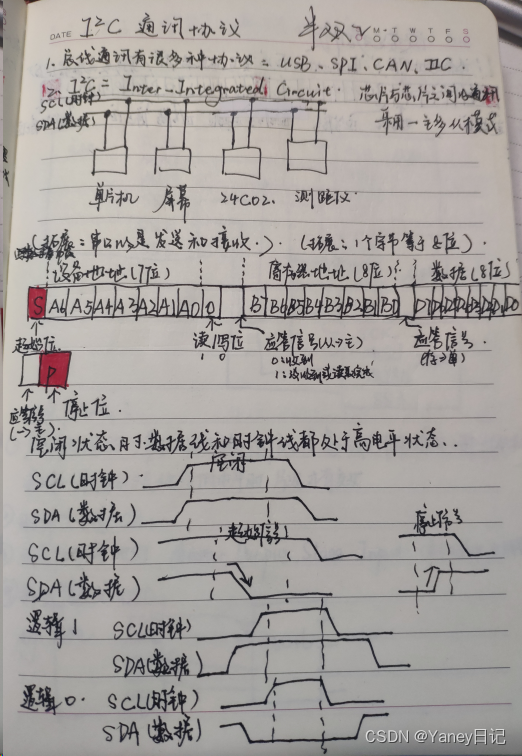 DATE I²C 通讯协议 半双工 M T W T F S
1. 总线通讯有很多种协议: USB、SPI、CAN、IIC.
2. I²C = Inter-Integrated Circuit. 芯片与芯片之间的通讯
SCL(时钟) 采用一主多从模式
SDA(数据)
单片机 屏幕 24C02. 测距仪
(拓展: 1个字节等于8位).
设备地址(7位) 寄存器地址(8位) 数据(8位)
S A6 A5 A4 A3 A2 A1 A0 0 B7 B6 B5 B4 B3 B2 B1 B0 D7 D6 D5 D4 D3 D2 D1 D0
起始位 读/写位 应答信号(从->主) 应答信号
1 0 0:收到
P
停止位.
空闲状态时数据线和时钟线都处于高电平状态.
空闲
SCL(时钟)
SDA(数据)
起始信号 停止信号
SCL(时钟)
SDA(数据)
逻辑1 SCL(时钟)
SDA(数据)
逻辑0. SCL(时钟)
SDA(数据)
CSDN @Yaney日记